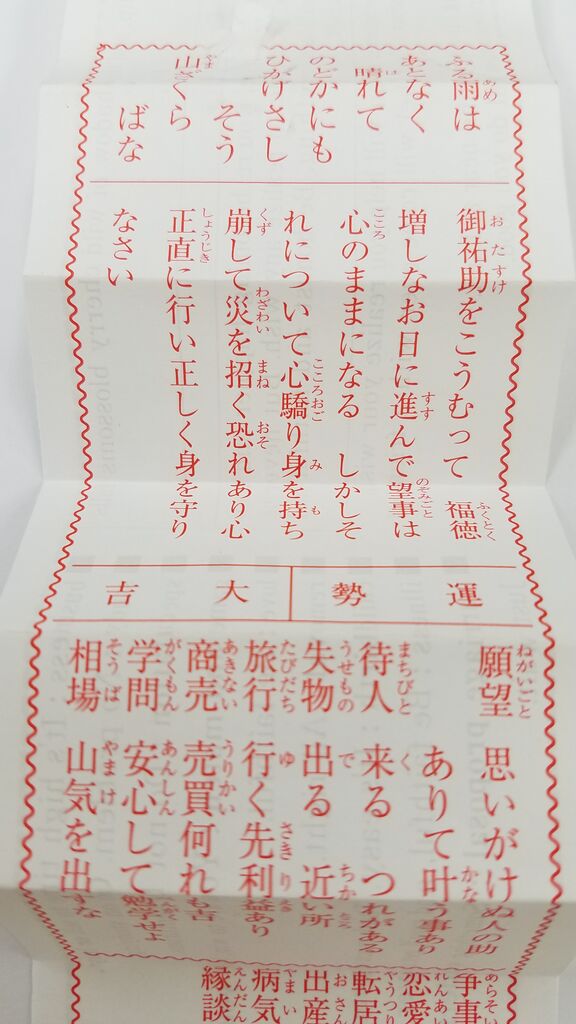 ふる雨は
あとなく
晴れて
のどかにも
ひかげさし
そう
山ざくら
ばな
御祐助をこうむって 福徳
増しなお日に進んで望事は
心のままになる しかしそ
れについて心驕り身を持ち
崩して災を招く恐れあり心
正直に行い正しく身を守り
なさい
運勢 大吉
願望 思いがけぬ人の助
ありて叶う事あり
待人 来る つれがある
失物 出る 近い所
旅行 行く先利益あり
商売 売買何れも吉
学問 安心して勉学せよ
相場 山気を出すな
争事
恋愛
転居
出産
病気
縁談